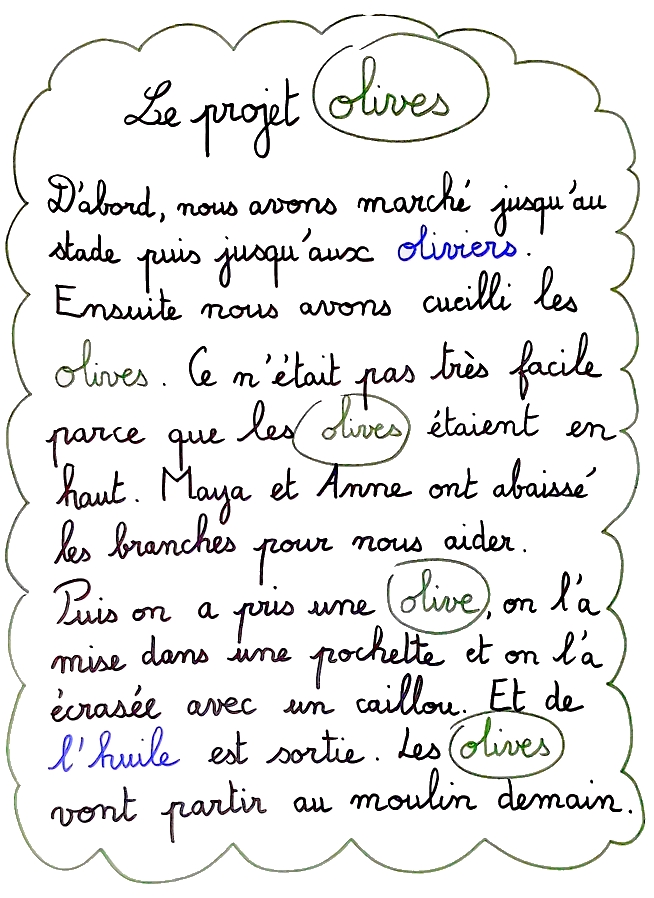 Le projet olives
D'abord, nous avons marché jusqu'au
stade puis jusqu'aux oliviers.
Ensuite nous avons cueilli les
olives. Ce n'était pas très facile
parce que les olives étaient en
haut. Maya et Anne ont abaissé
les branches pour nous aider.
Puis on a pris une olive, on l'a
mise dans une pochette et on l'a
écrasée avec un caillou. Et de
l'huile est sortie. Les olives
vont partir au moulin demain.